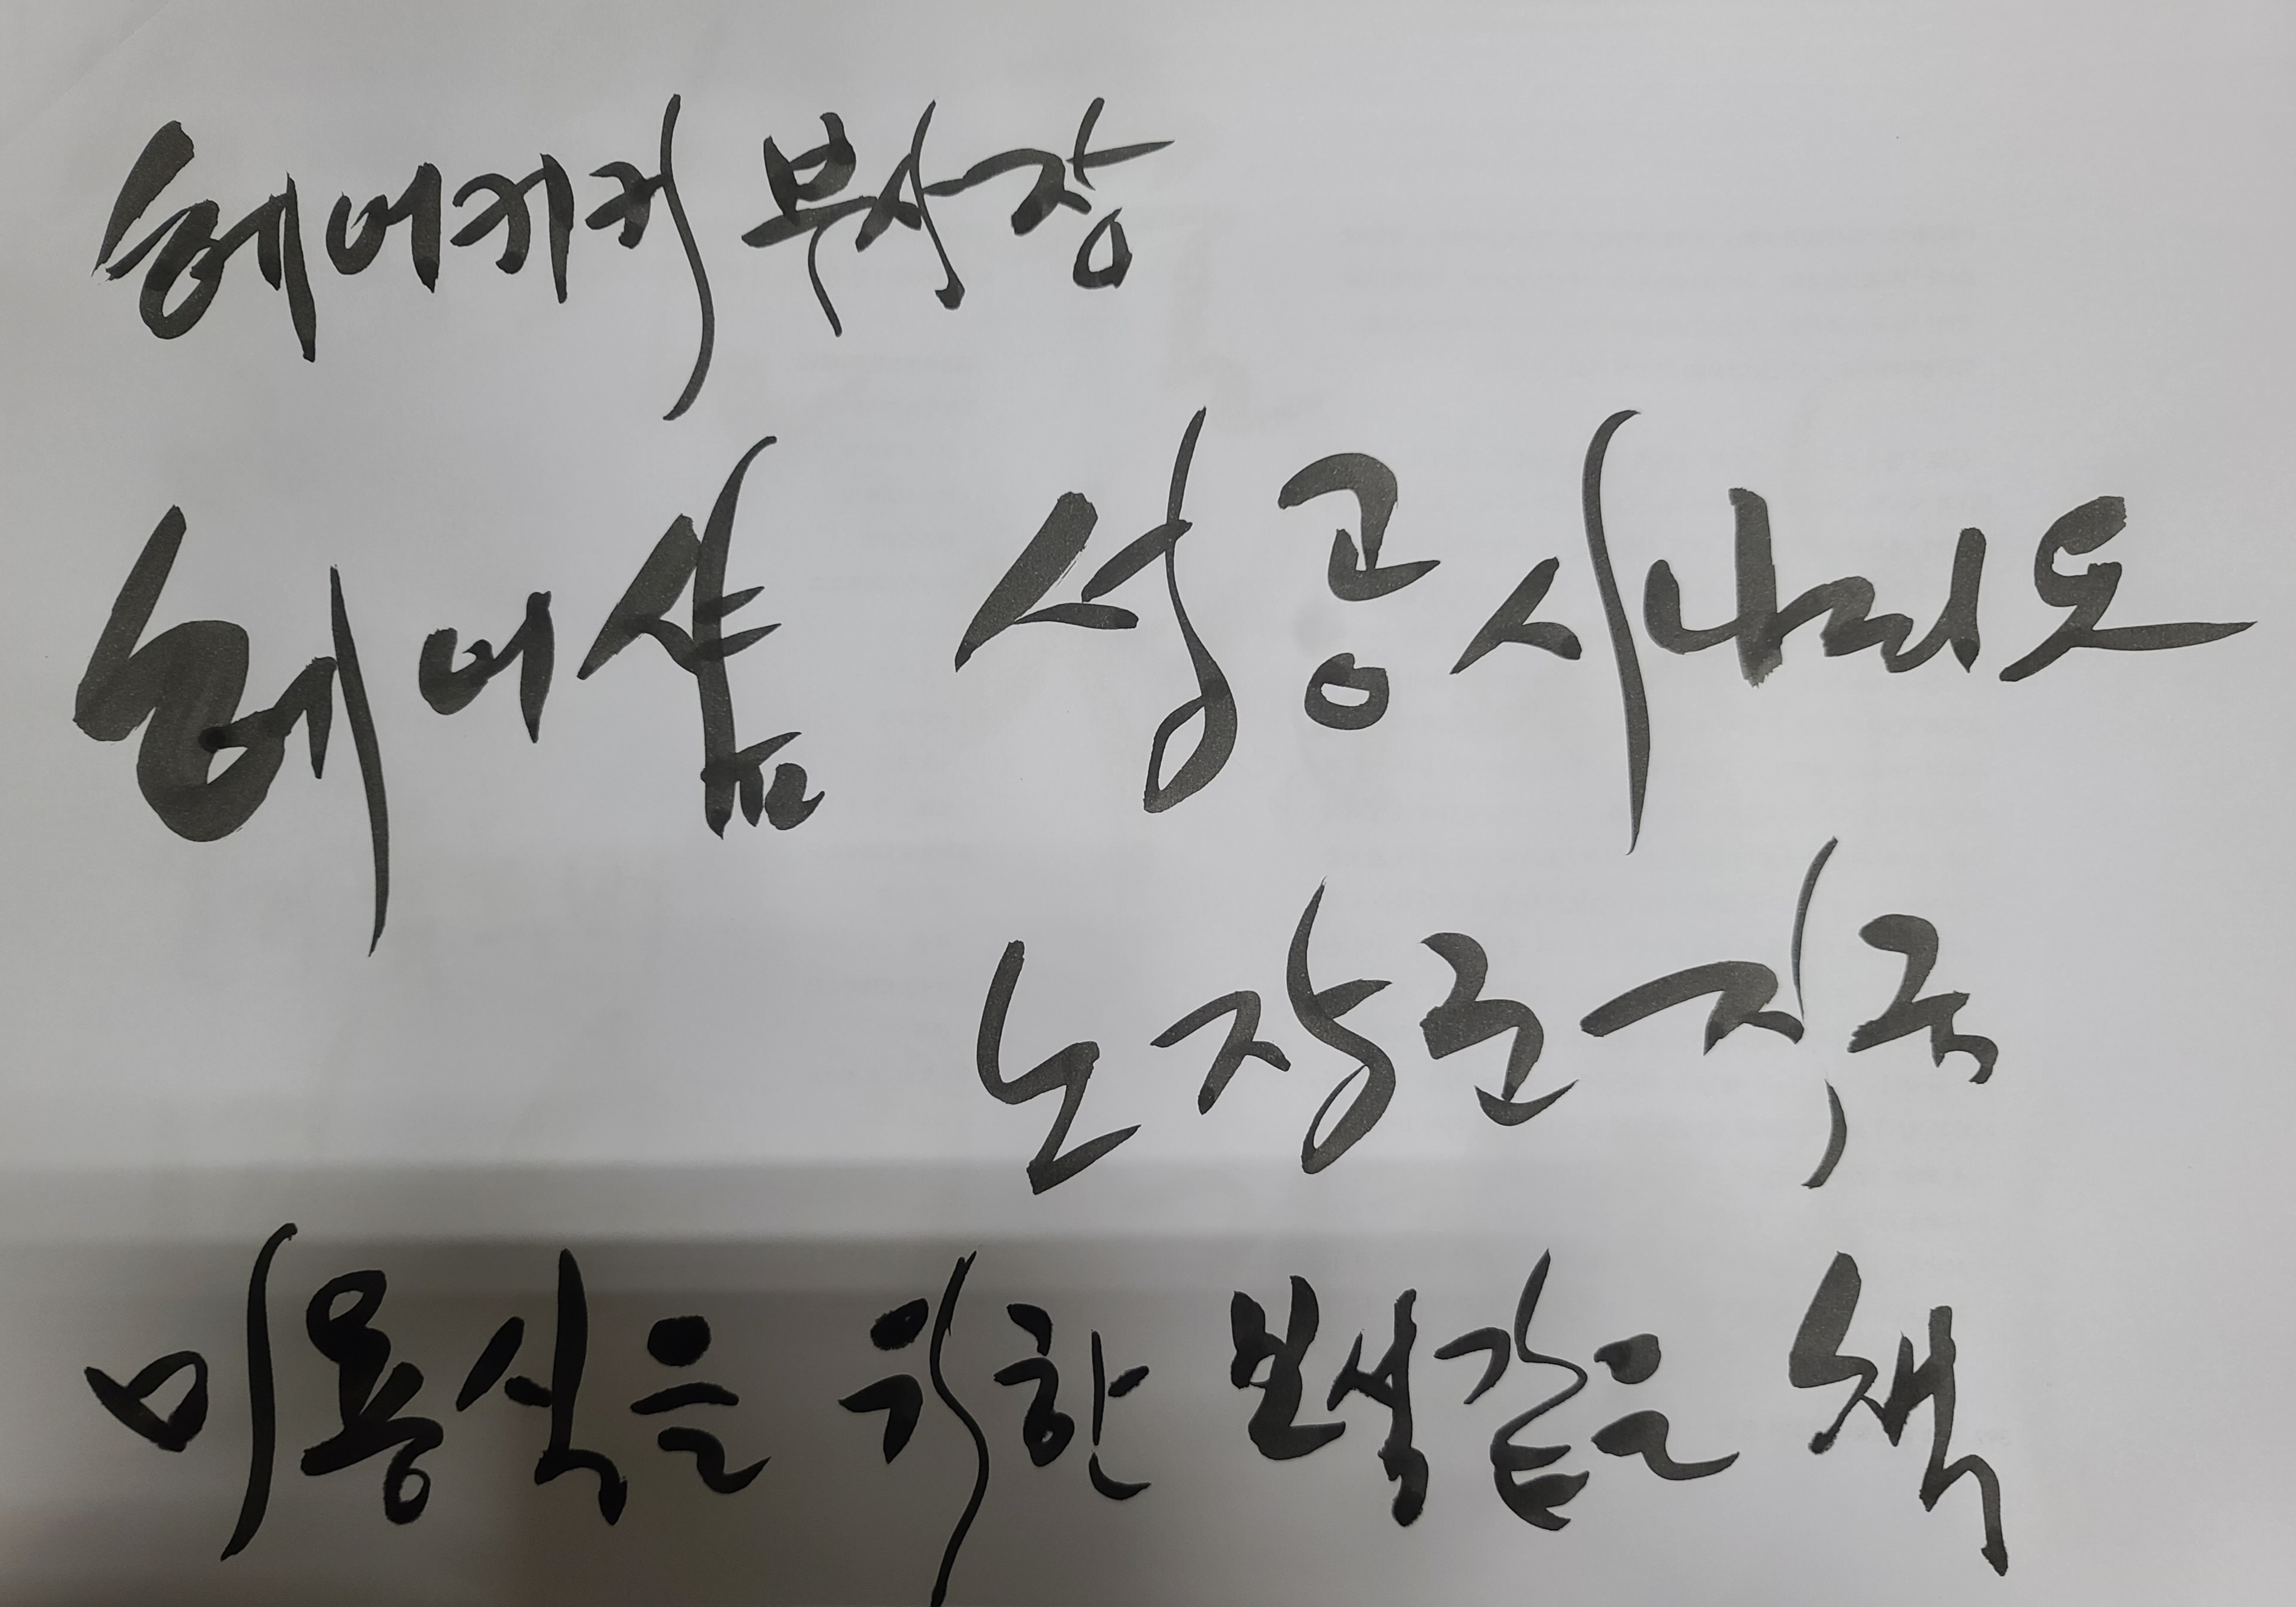 헤어키키 부사장
헤어샵 성공 시나리오
노장르 지국
미용실을 위한 보석같은 책